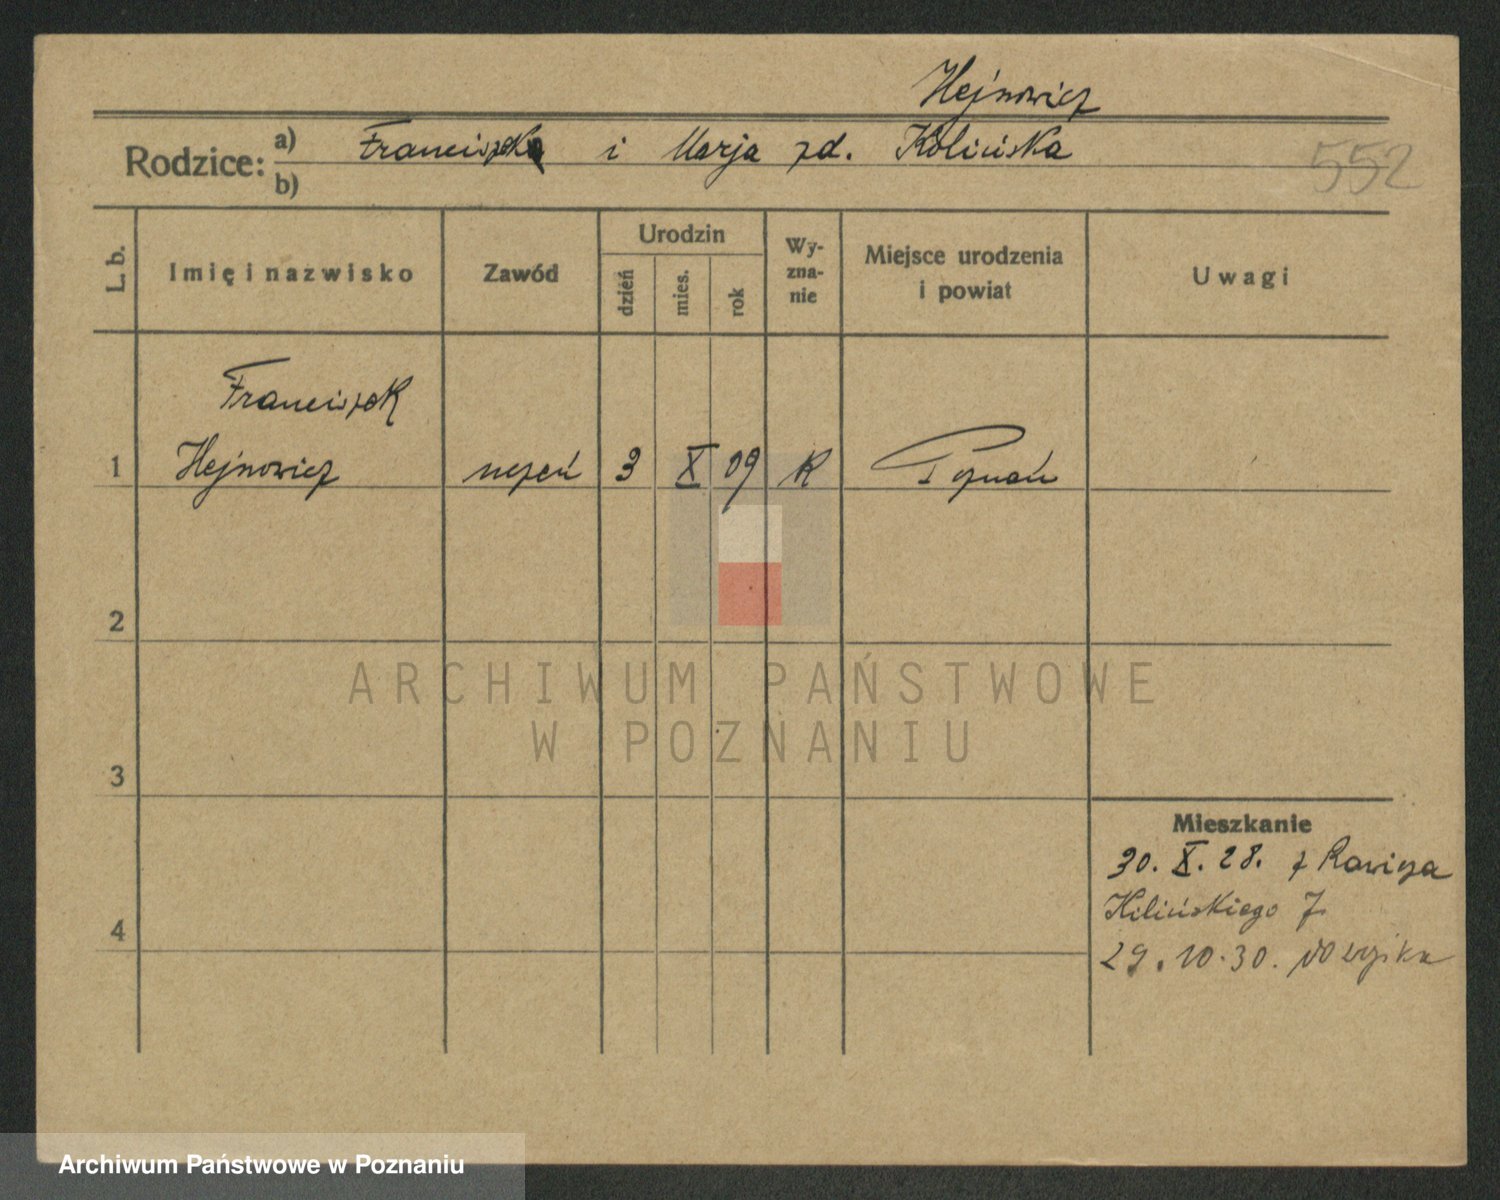 Hejnowicz
Rodzice: a) Franciszek i Marja zd. Kolińska
b)
552
L. b. Imię i nazwisko Zawód Urodzin dzień mies. rok Wyznanie Miejsce urodzenia i powiat Uwagi
Franciszek
1 Hejnowicz uczeń 3 X 09 R Poznań
2
ARCHIWUM PAŃSTWOWE
W POZNANIU
3
Mieszkanie
30. X. 28. z Rawicza
Kilińskiego 7.
4
29. 10. 30. do wojska
Archiwum Państwowe w Poznaniu